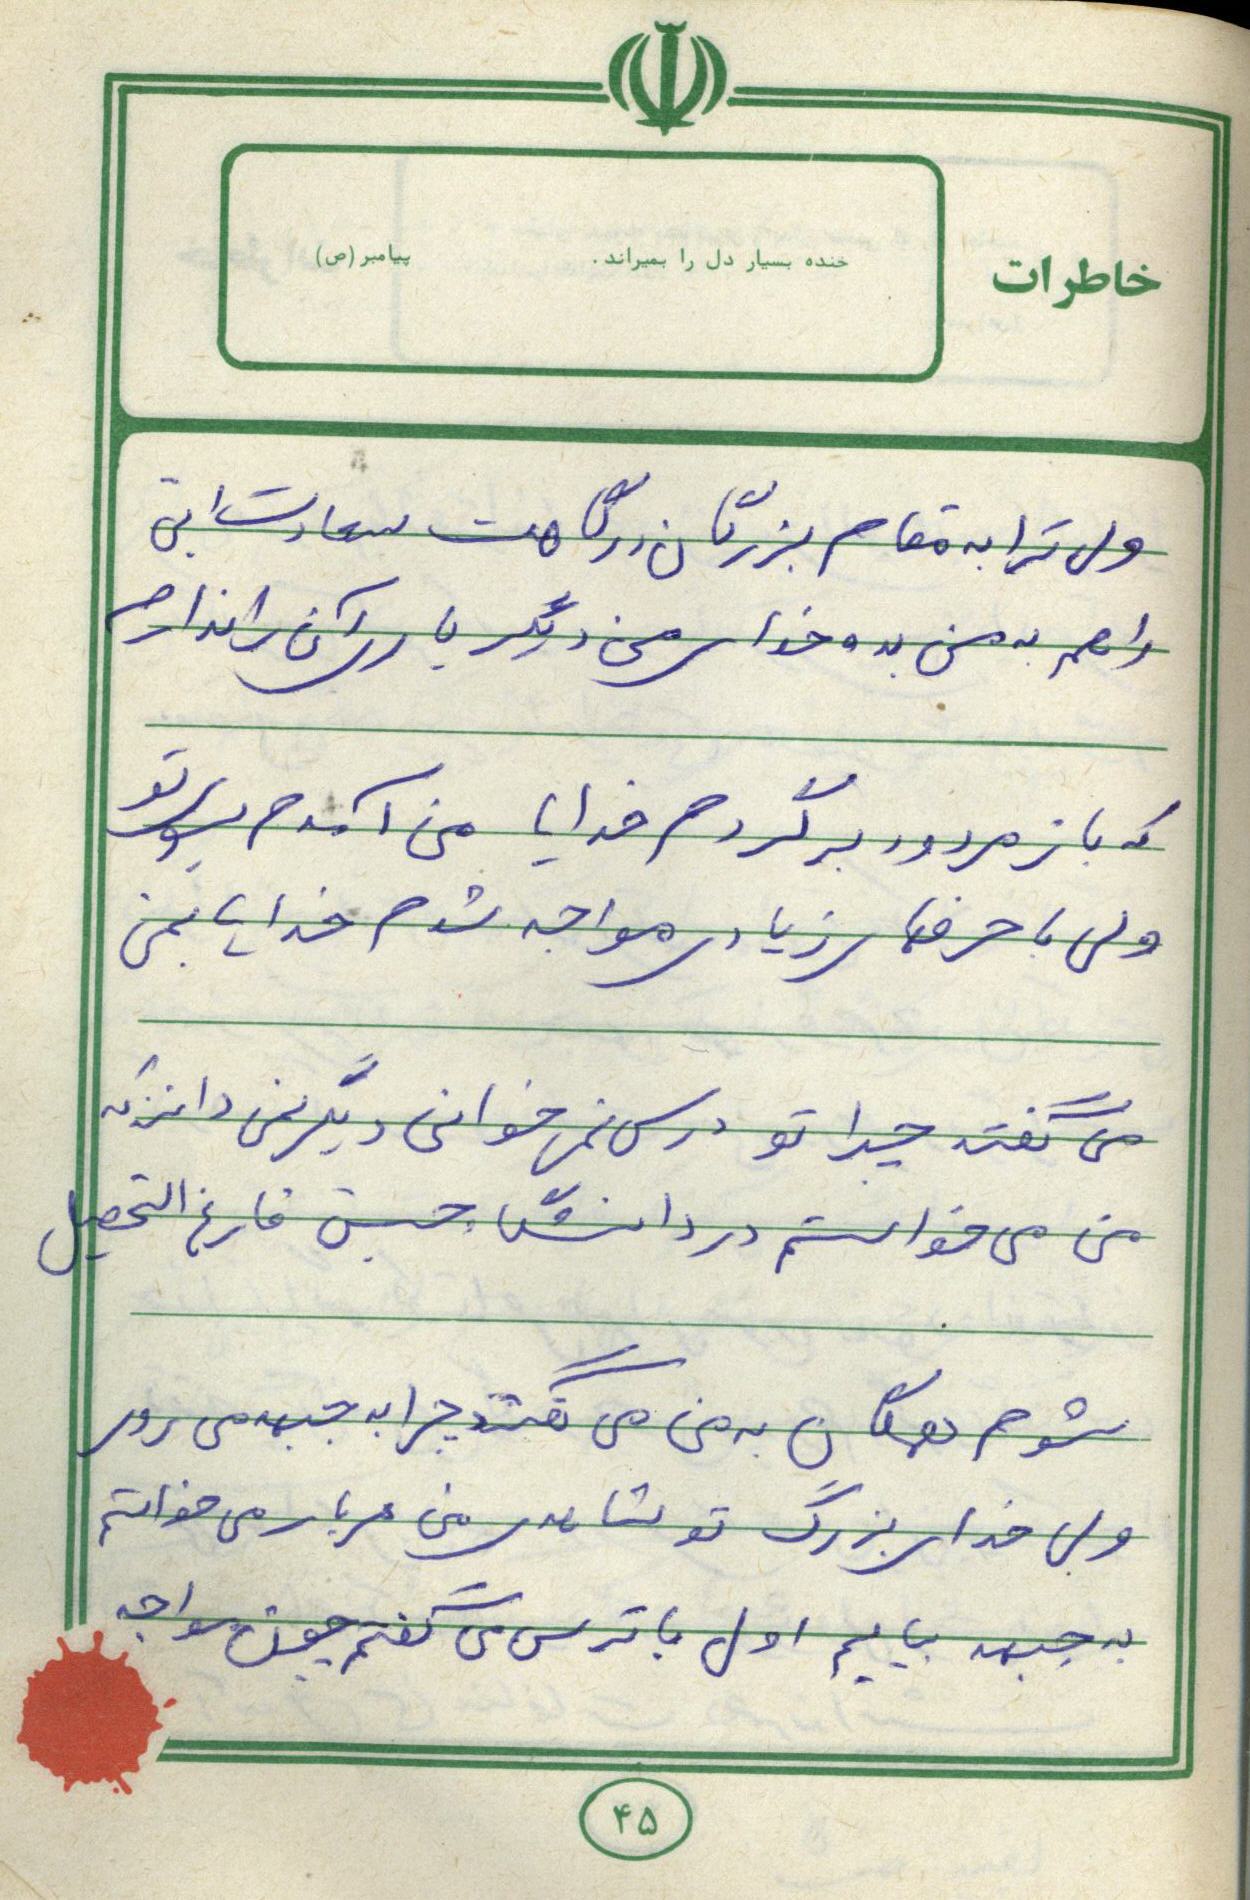 خاطرات
خنده بسیار دل را بمیراند. پیامبر (ص)
ولی ترا به مقام بزرگان درگاهت سعادت این
راهم به من بده خدای من دیگر یارای آن را ندارم
که باز مردود برگردم خدایا من آمدم بسوی تو
ولی با حرفهای زیادی مواجه شدم خدایا بمن
می گفتند چرا تو درس نمی خوانی دیگر نمی دانند که
من می خواستم در دانشگاه فارغ التحصیل
شوم همگان به من می گفتند چرا به جبهه می روی
ولی خدای بزرگ تو شاهدی من هر بار می خواستم
به جبهه بیایم اول با ترس می گفتم چون مواجه
۴۵